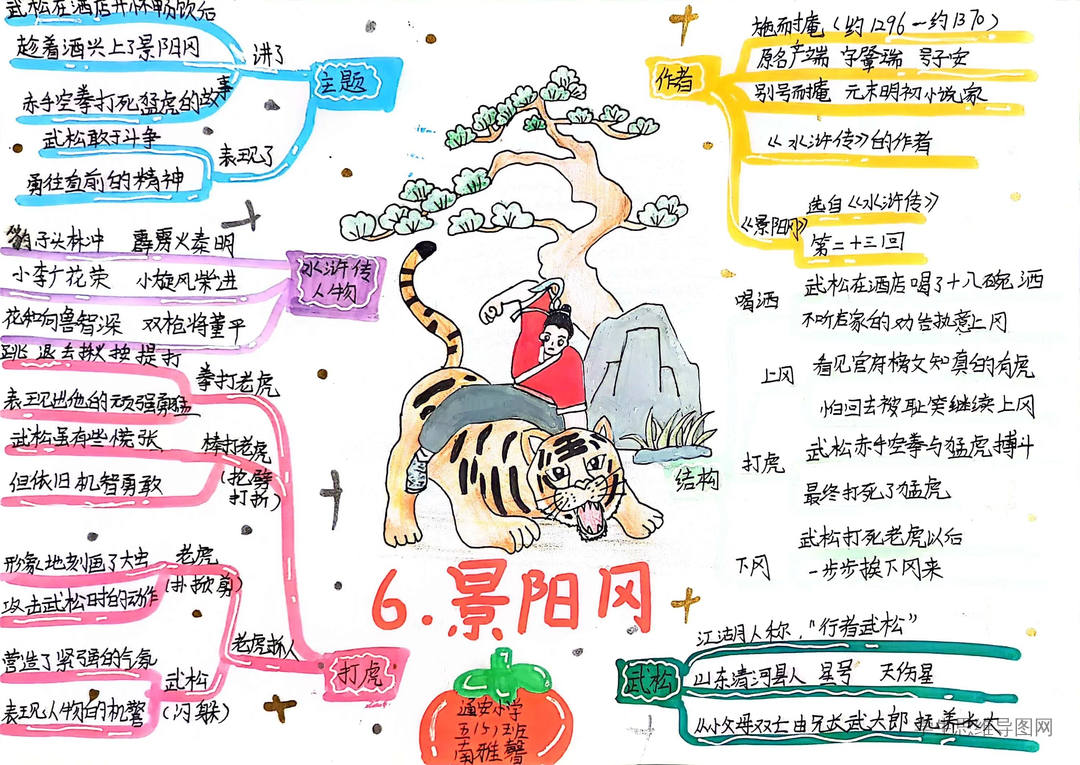 武松在酒店开怀畅饮后
趁着酒兴上了景阳冈
讲了
主题
赤手空拳打死猛虎的故事
武松敢于斗争
表现了
勇往直前的精神
豹子头林冲 霹雳火秦明
小李广花荣 小旋风柴进
水浒传
人物
花和尚鲁智深 双枪将董平
跳 退去揪按提打
拳打老虎
表现出他的顽强勇猛
武松虽有些慌张
棒打老虎
(抡劈
打折)
但依旧机智勇敢
形象地刻画了大虫
老虎
(扑掀剪)
攻击武松时的动作
老虎抓人
打虎
营造了紧张的气氛
武松
(闪躲)
表现人物的机警
6.景阳冈
通史小学
五(5)班
南雅馨
作者
施耐庵(约1296一约1370)
原名产端 字肇瑞 号子安
别号耐庵 元末明初小说家
《水浒传》的作者
《景阳冈》
选自《水浒传》
第二十三回
结构
喝酒
武松在酒店喝了十八碗酒
不听店家的劝告执意上冈
上冈
看见官府榜文知真的有虎
怕回去被耻笑继续上冈
打虎
武松赤手空拳与猛虎搏斗
最终打死了猛虎
下冈
武松打死老虎以后
一步步挨下冈来
武松
江湖人称,“行者武松”
山东清河县人 星号 天伤星
从小父母双亡由兄长武大郎抚养长大
思维导图网